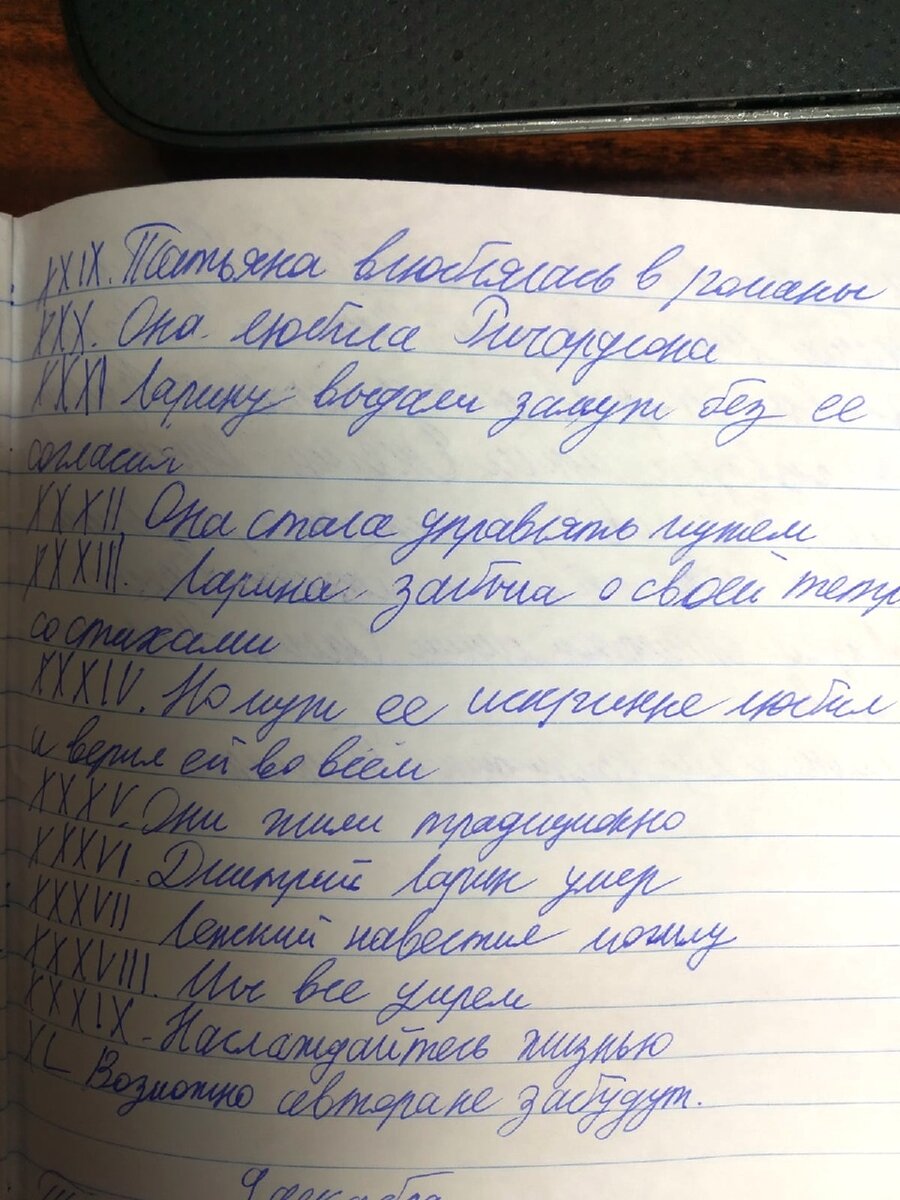 XXIX. Татьяна влюблялась в романы
XXX. Она любила Ричардсона
XXXI Ларину выдали замуж без ее
согласия
XXXII Она стала управлять мужем
XXXIII. Ларина забыла о своей тетр
со стихами
XXXIV. Но муж ее искренне любил
и верил ей во всём
XXXV. Они жили традиционно
XXXVI. Дмитрий Ларин умер
XXXVII Ленский навестил могилу
XXXVIII. Мы все умрем
XXXIX. Наслаждайтесь жизнью
XL Возможно автора не забудут.
9 декабря